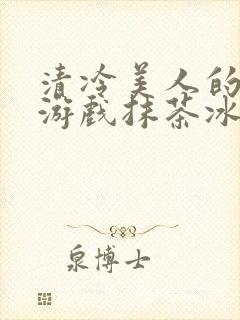 清冷美人的
游戏抹茶冰
泉博士